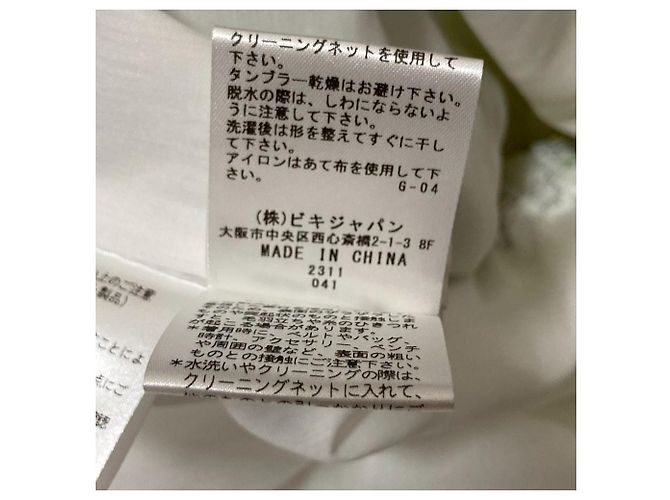 クリーニングネットを使用して
下さい。
タンブラー乾燥はお避け下さい。
脱水の際は、しわにならないよ
うに注意して下さい。
洗濯後は形を整えてすぐに干し
て下さい。
アイロンはあて布を使用して下
さい。
G-04
(株)ビキジャパン
大阪市中央区西心斎橋2-1-3 8F
MADE IN CHINA
2311
041
上のご注意
製品)
ことによ
点にご
ものや突起状のもの
と、毛羽立ちや糸のひきつれ
が起こる場合があります。
*着用時に、ベルトやバッグ、
時計、アクセサリー、ベンチ
や周囲の壁など、表面の粗い
ものとの接触にご注意下さい。
*水洗いやクリーニングの際は、
クリーニングネットに入れて、